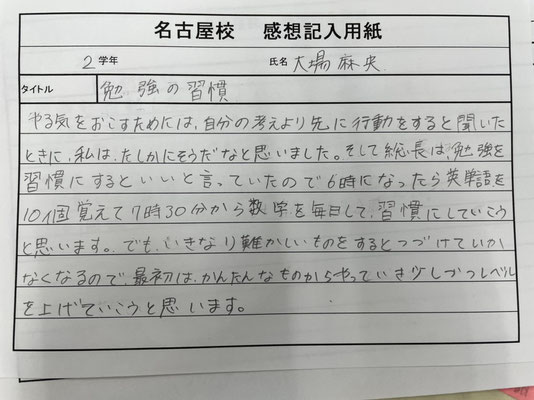 名古屋校 感想記入用紙
2 学年 氏名 大場麻央
タイトル 勉強の習慣
やる気をおこすためには、自分の考えより先に行動をすると聞いた
ときに、私は、たしかにそうだなと思いました。そして総長は、勉強を
習慣にするといいと言っていたので6時になったら英単語を
10個覚えて7時30分から数学を毎日して、習慣にしていこう
と思います。でも、いきなり難かしいものをするとつづけていか
なくなるので、最初は、かんたんなものからやっていき少しづつレベル
を上げていこうと思います。